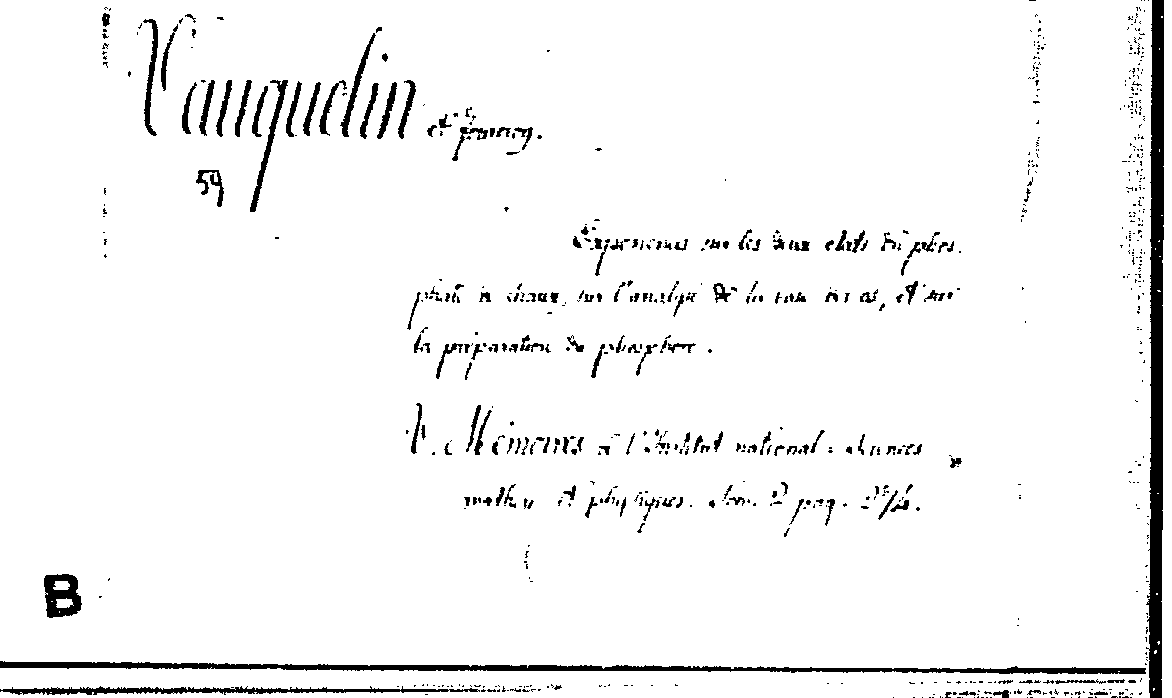 Vauquelin et Fourcroy.
59
Experiences sur les deux etats du phos-
phate de chaux, sur l'analyse de la des os, et sur
la préparation du phosphore.
V. Mémoires de l'Institut national: sciences
mathem et physiques. Tom. 2 pag. 274.
B